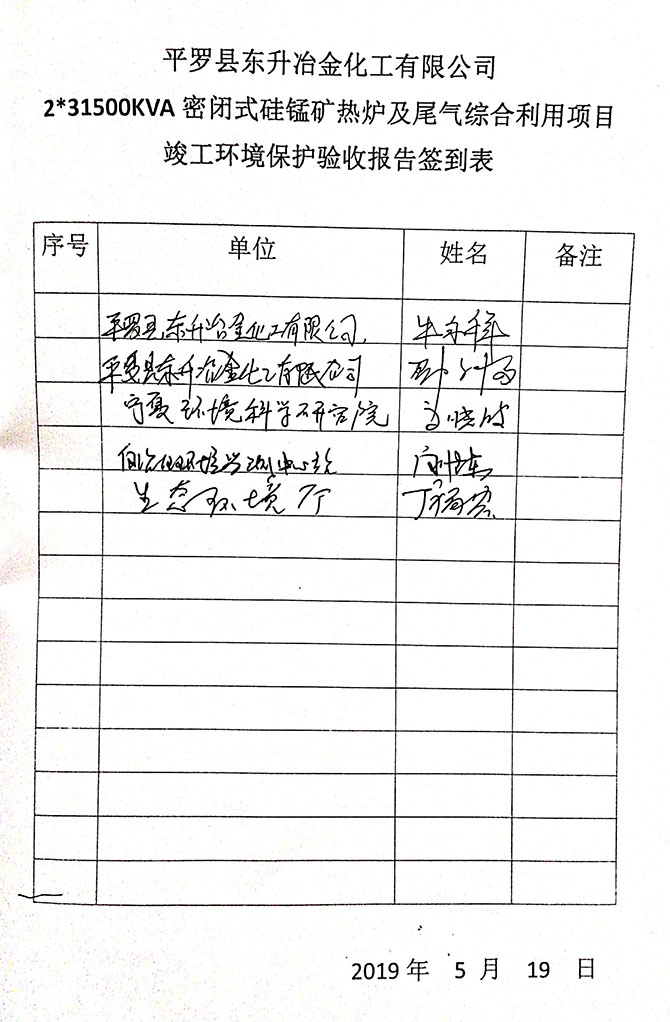 平罗县东升冶金化工有限公司
2*31500KVA 密闭式硅锰矿热炉及尾气综合利用项目
竣工环境保护验收报告签到表
序号 单位 姓名 备注
平罗县东升冶金化工有限公司
平罗县东升冶金化工有限公司
宁夏环境科学研究院
环境监测中心站
生态环境厅
2019 年 5 月 19 日